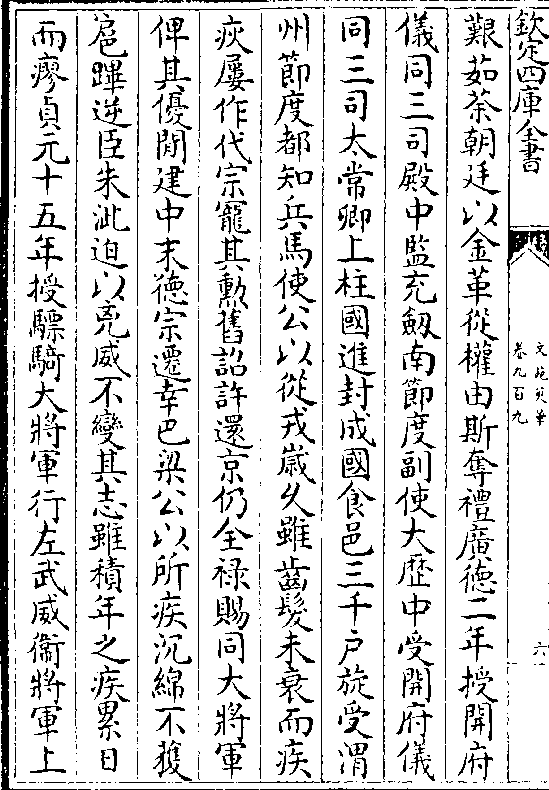 欽定四庫全書
文苑英華
卷九百九
六
艱茹荼朝廷以金革從權由斯奪禮廣德二年授開府
儀同三司殿中監充劔南節度副使大歷中受開府儀
同三司太常卿上柱國進封成國食邑三千户旋受渭
州節度都知兵馬使公以從戎嵗久雖齒髮未衰而疾
疢屢作代宗寵其勲舊詔許還京仍全禄賜同大將軍
俾其優閒建中末德宗遷幸巴梁公以所疾沉綿不獲
扈蹕逆臣朱泚迫以兇威不變其志雖積年之疾累日
而瘳貞元十五年授驃騎大將軍行左武威衞將軍上